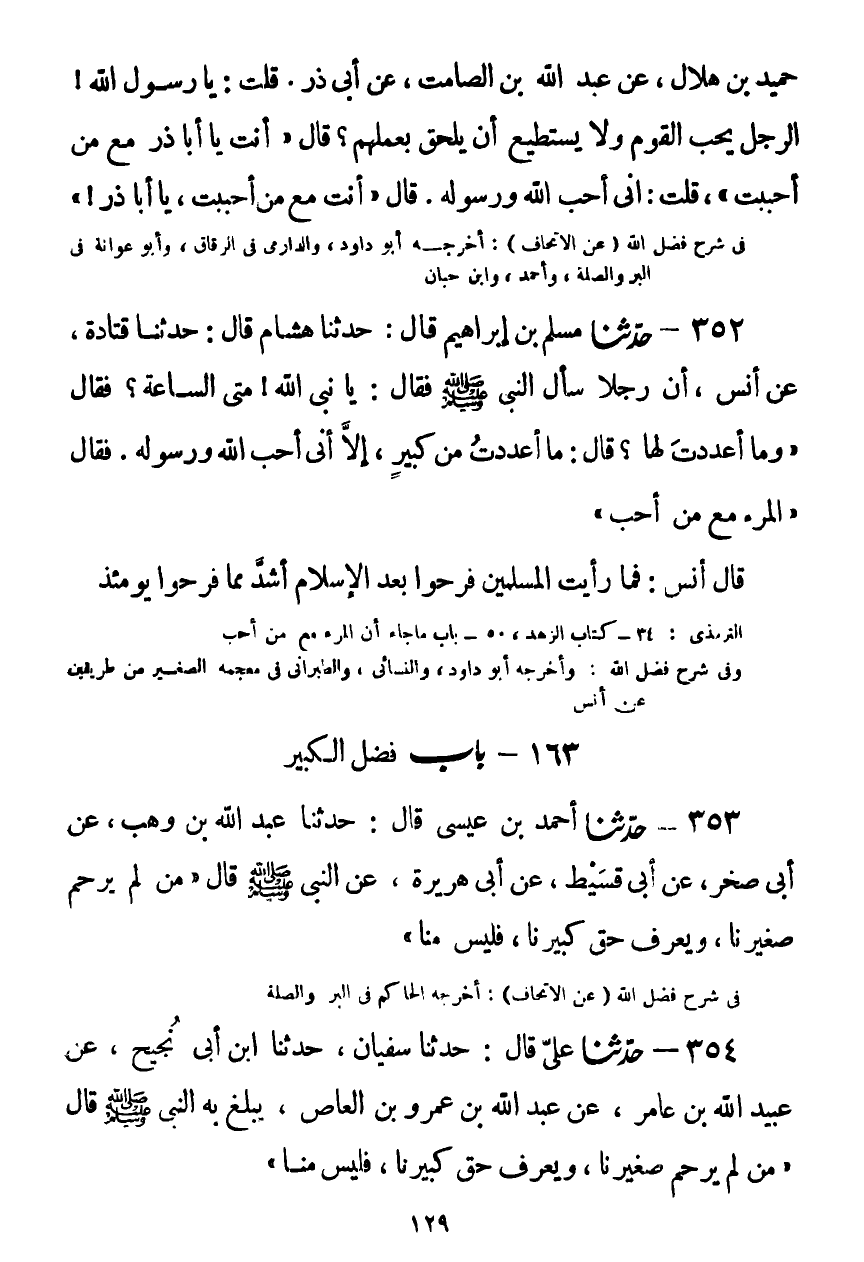 حميد بن هلال ، عن عبد الله بن الصامت ، عن أبى ذر . قلت : يا رسول الله !
الرجل يحب القوم ولا يستطيع أن يلحق بعملهم ؟ قال « أنت يا أبا ذر مع من
أحببت » ، قلت : انى أحب الله ورسوله . قال « أنت مع من أحببت ، يا أبا ذر ! »
فى شرح فضل الله ( عن الاتحاف ) : أخرجه أبو داود ، والدارى فى الرقاق ، وأبو عوانة فى
البر والصلة ، وأحمد ، وابن حبان
٣٥٢ – حدّثنا مسلم بن إبراهيم قال : حدثنا هشام قال : حدثنا قتادة ،
عن أنس ، أن رجلا سأل النبى ﷺ فقال : يا نبى الله ! متى الساعة ؟ فقال
« وما أعددتَ لها ؟ قال : ما أعددتُ من كبيرٍ ، إلاَّ أنى أحب الله ورسوله . فقال
« المرء مع من أحب »
قال أنس : فما رأيت المسلمين فرحوا بعد الإسلام أشدَّ مما فرحوا يومئذ
الترمذى : ٣٤ – كتاب الزهد ، ٥٠ – باب ماجاء أن المرء مع من أحب
وفى شرح فضل الله : وأخرجه أبو داود ، والنسائى ، والطبرانى فى معجمه الصغير من طريقين
عن أنس
١٦٣ – باب فضل الكبير
٣٥٣ – حدّثنا أحمد بن عيسى قال : حدثنا عبد الله بن وهب ، عن
أبى صخر ، عن أبى قسَيْط ، عن أبى هريرة ، عن النبى ﷺ قال « من لم يرحم
صغيرنا ، ويعرف حق كبيرنا ، فليس منا »
فى شرح فضل الله ( عن الاتحاف ) : أخرجه الحاكم فى البر والصلة
٣٥٤ – حدّثنا علىّ قال : حدثنا سفيان ، حدثنا ابن أبى نُجيح ، عن
عبيد الله بن عامر ، عن عبد الله بن عمرو بن العاص ، يبلغ به النبى ﷺ قال
« من لم يرحم صغيرنا ، ويعرف حق كبيرنا ، فليس منا »
١٢٩